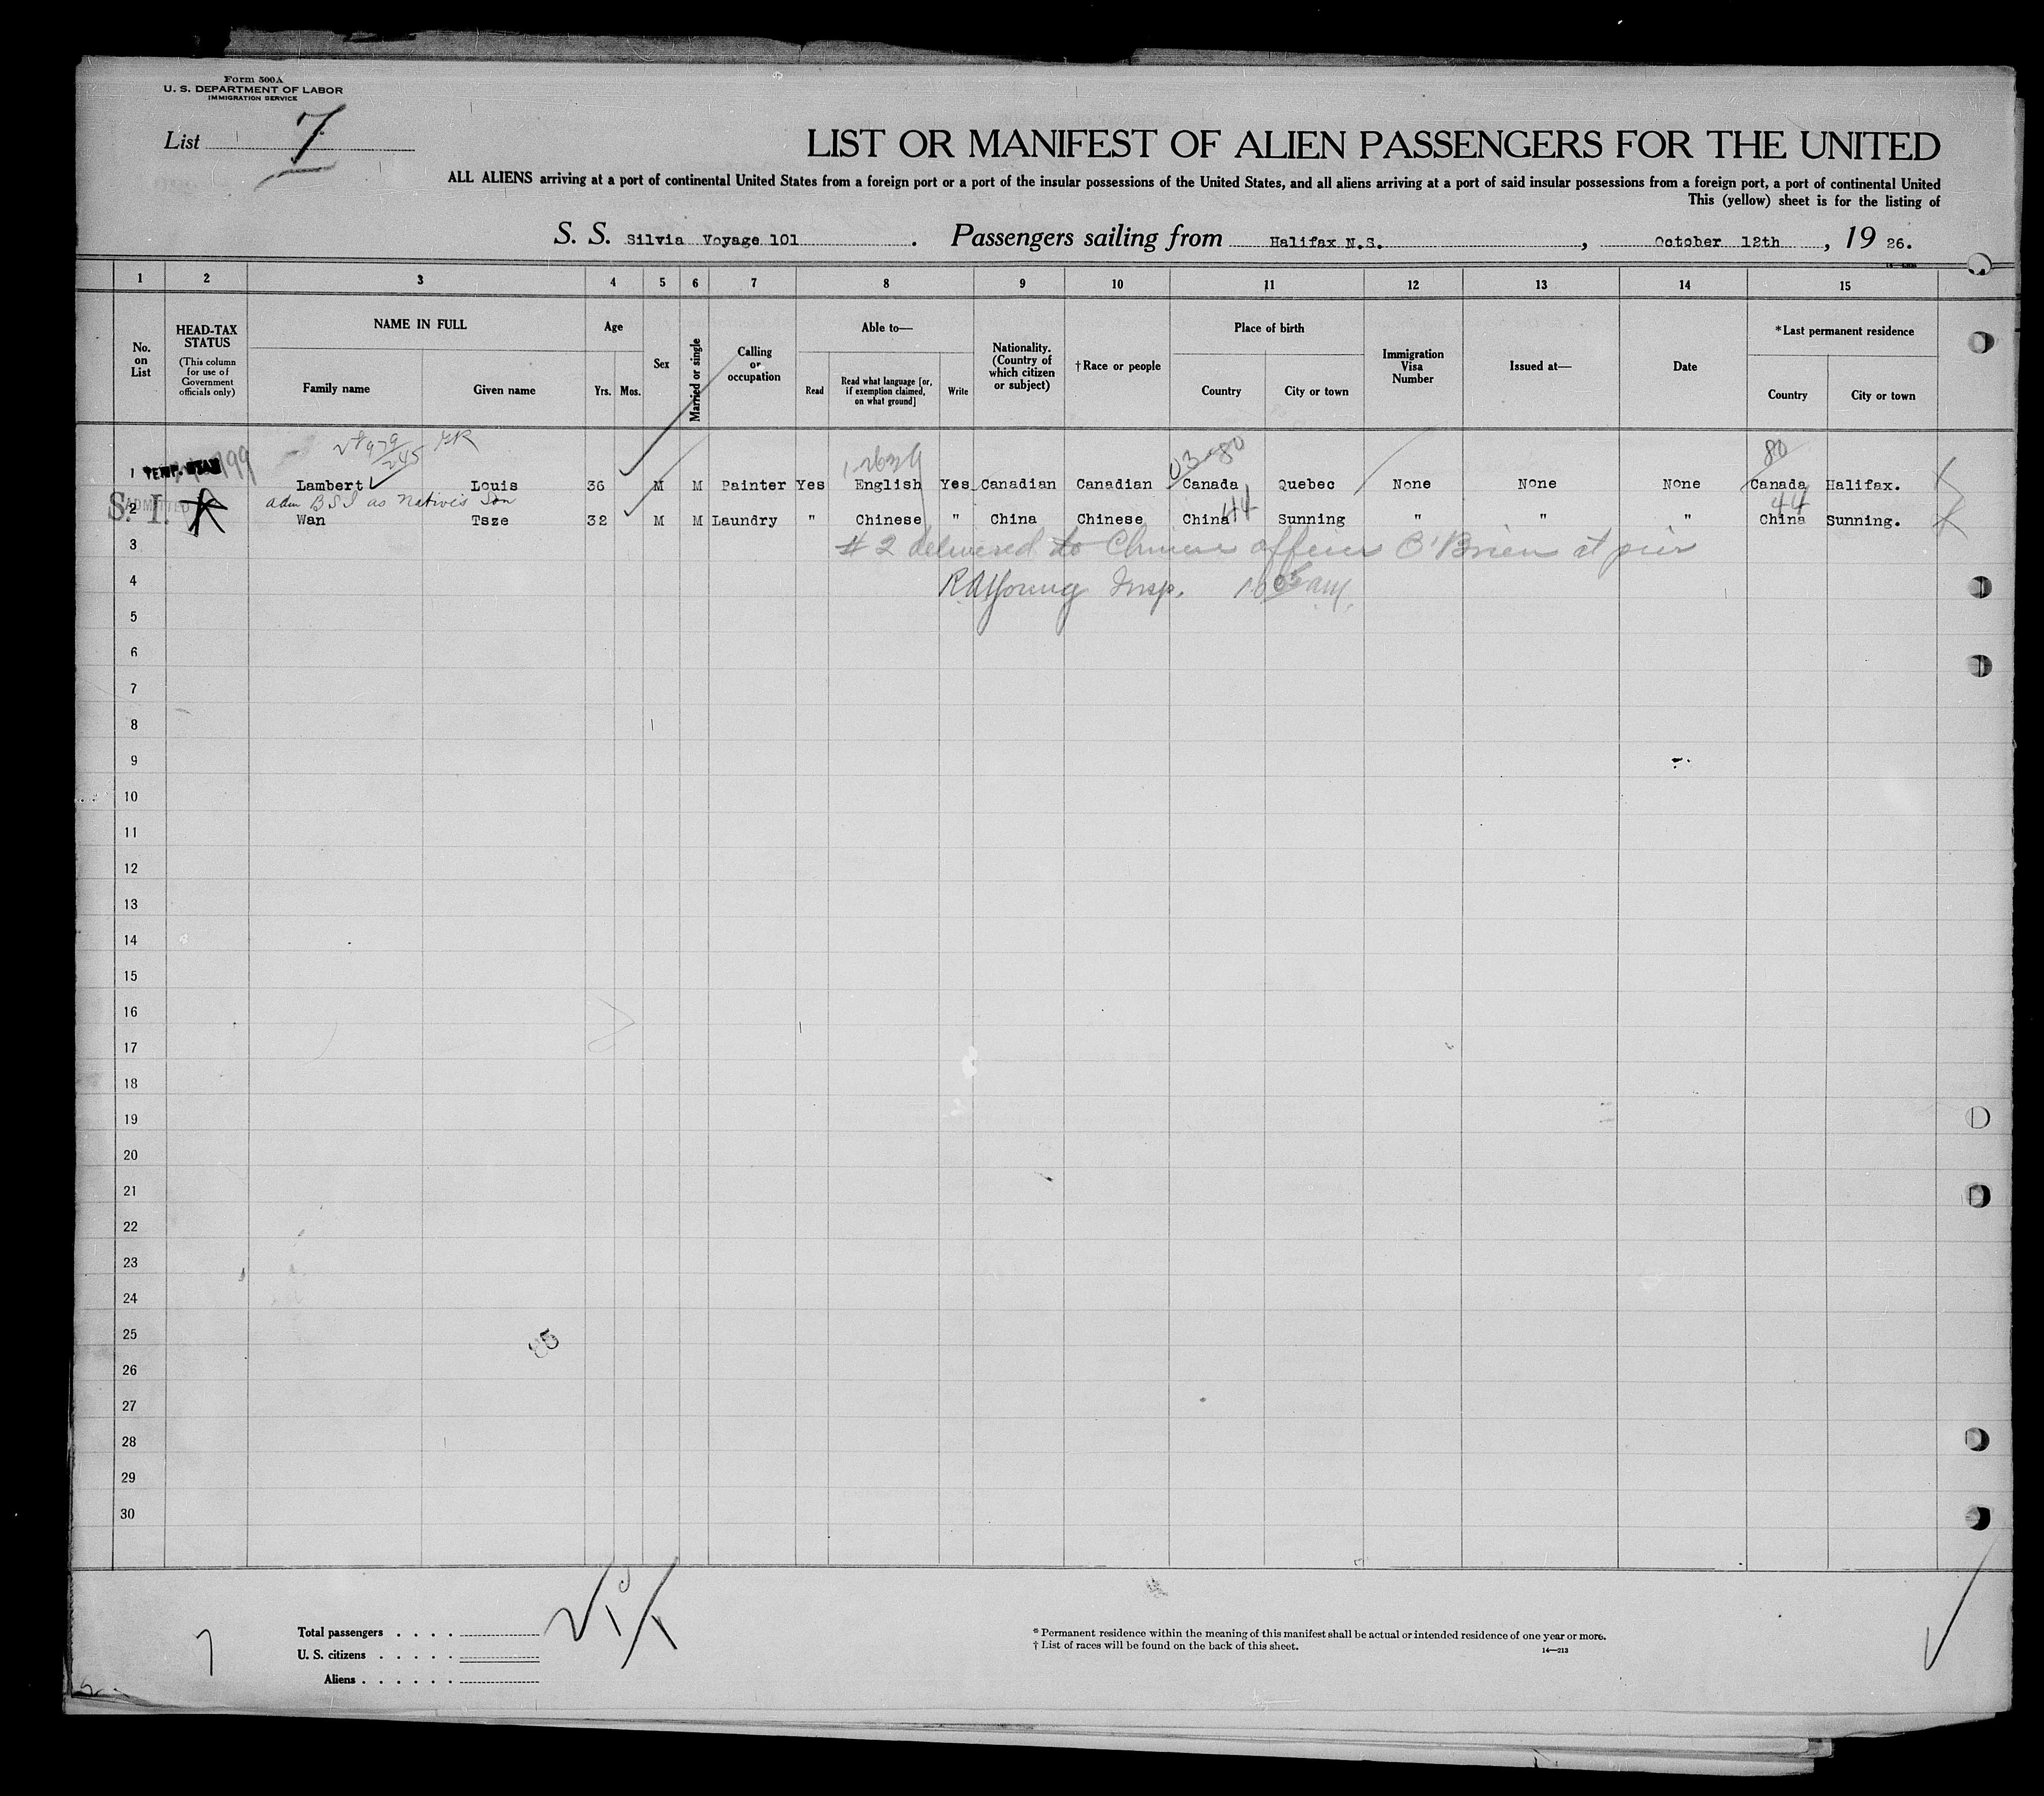 Form 500A
U. S. DEPARTMENT OF LABOR
IMMIGRATION SERVICE
List 7
LIST OR MANIFEST OF ALIEN PASSENGERS FOR THE UNITED
ALL ALIENS arriving at a port of continental United States from a foreign port or a port of the insular possessions of the United States, and all aliens arriving at a port of said insular possessions from a foreign port, a port of continental United
This (yellow) sheet is for the listing of
S. S. Silvia Voyage 101. Passengers sailing from Halifax N.S., October 12th, 1926.
1 2 3 4 5 6 7 8 9 10 11 12 13 14 15
No. on List
HEAD-TAX STATUS
(This column for use of Government officials only)
NAME IN FULL
Family name Given name
Age
Yrs. Mos.
Sex
Married or single
Calling or occupation
Able to—
Read
Read what language [or, if exemption claimed, on what ground]
Write
Nationality. (Country of which citizen or subject)
†Race or people
Place of birth
Country City or town
Immigration Visa Number
Issued at—
Date
*Last permanent residence
Country City or town
03-80 80
1 Lambert Louis 36 M M Painter Yes English Yes Canadian Canadian Canada Quebec None None None Canada Halifax.
adm BSI as Native's Son
44 44
S. I. ADMITTED
2 Wan Tsze 32 M M Laundry " Chinese " China Chinese China Sunning " " " China Sunning.
3 # 2 delivered to Chinese officer O'Brien at pier
4 R.A. Young Insp.
5
6
7
8
9
10
11
12
13
14
15
16
17
18
19
20
21
22
23
24
25
26
27
28
29
30
85
Total passengers
U. S. citizens
Aliens
7
* Permanent residence within the meaning of this manifest shall be actual or intended residence of one year or more.
† List of races will be found on the back of this sheet.
14—213